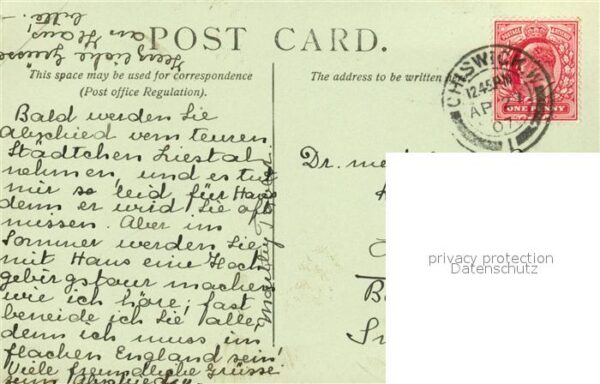 POST CARD.
This space may be used for correspondence
(Post office Regulation).
The address to be written
CHISWICK. W.
12.45 PM
AP
07
POSTAGE REVENUE
ONE PENNY
Herzliche Grüsse
an Hans!
Bald werden Sie
Abschied vom teuren
Städtchen Liestal
nehmen, und es tut
mir so leid für Hans
denn er wird Sie oft
missen. Aber im
Sommer werden Sie
mit Hans eine Hoch
gebirgstour machen
wie ich höre; fast
beneide ich Sie alle,
denn ich muss im
flachen England sein!
Viele freundliche Grüsse
zum Abschied
Dr. med
privacy protection
Datenschutz